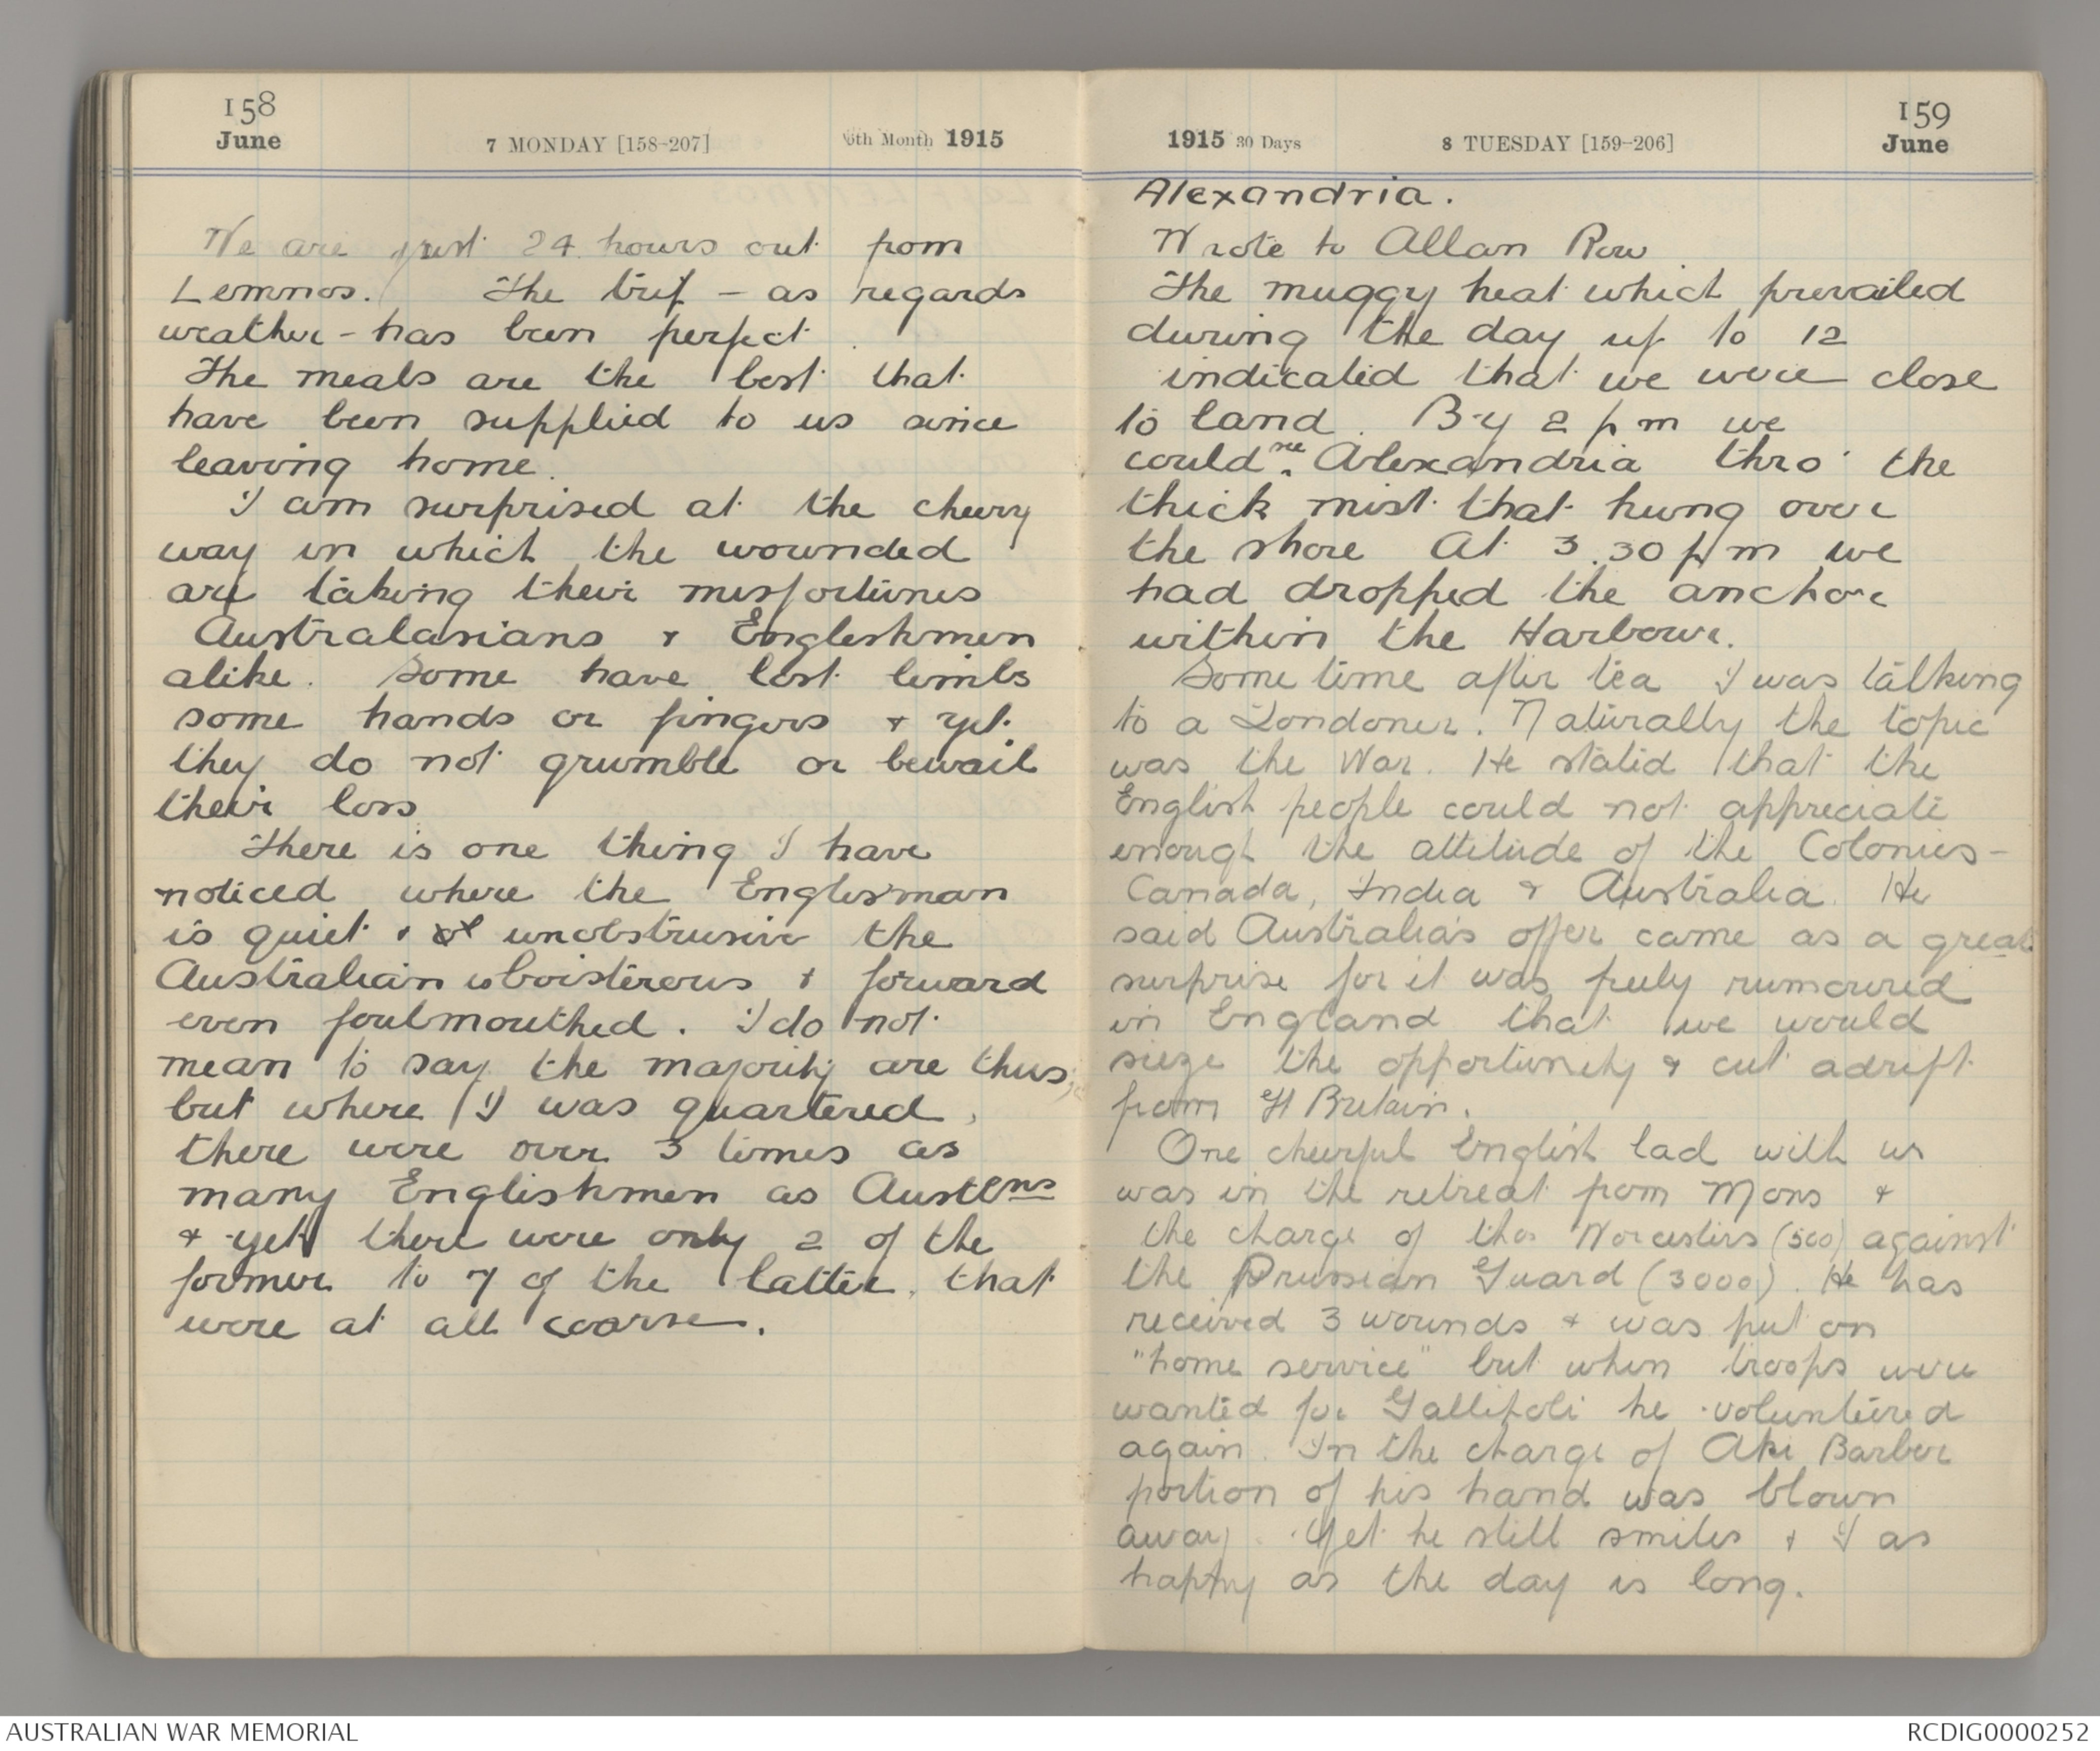 158
June
7 MONDAY [158-207]
6th Month 1915
We are just 24 hours out from
Lemnos. The trip - as regards
weather - has been perfect.
The meals are the best that
have been supplied to us since
leaving home.
I am surprised at the cheery
way in which the wounded
are taking their misfortunes
Australasians & Englishmen
alike. Some have lost limbs
some hands or fingers & yet
they do not grumble or bewail
their loss
There is one thing I have
noticed where the Englisman
is quiet & unobstrusive the
Australian is boisterous & forward
even foulmouthed. I do not
mean to say the majority are thus
but where I was quartered,
there were over 3 times as
many Englishmen as Austlns
& yet there were only 2 of the
former to 7 of the latter, that
were at all coarse.
1915 30 Days
8 TUESDAY [159-206]
159
June
Alexandria.
Wrote to Allan Row
The muggy heat which prevailed
during the day up to 12
indicated that we were close
to land. By 2 pm we
could see Alexandria thro' the
thick mist that hung over
the shore At 3.30 pm we
had dropped the anchor
within the Harbour.
Some time after tea I was talking
to a Londoner. Naturally the topic
was the War. He stated that the
English people could not appreciate
enough the attitude of the Colonies -
Canada, India & Australia. He
said Australia's offer came as a great
surprise for it was freely rumoured
in England that we would
sieze the opportunity & cut adrift
from Gt Britain.
One cheerful English lad with us
was in the retreat from Mons &
the charge of the Worcesters (500) against
the Prussian Guard (3000). He has
received 3 wounds & was put on
"home service" but when troops were
wanted for Gallipoli he volunteered
again. In the charge of Aki Barber
portion of his hand was blown
away. Yet he still smiles & I as
happy as the day is long.
AUSTRALIAN WAR MEMORIAL
RCDIG0000252